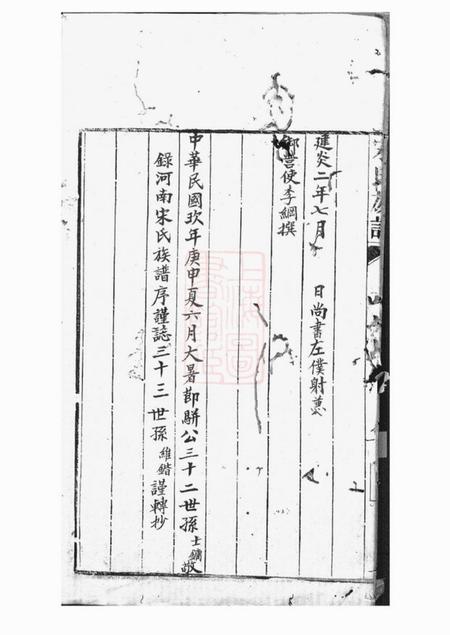 建炎二年七月 日尚書左僕射兼
御營使李綱撰
中華民國玖年庚申夏六月大暑節駢公三十二世孫士鏞敬
錄河南宋氏族譜序謹誌三十三世孫維鍇謹轉抄
氏族譜